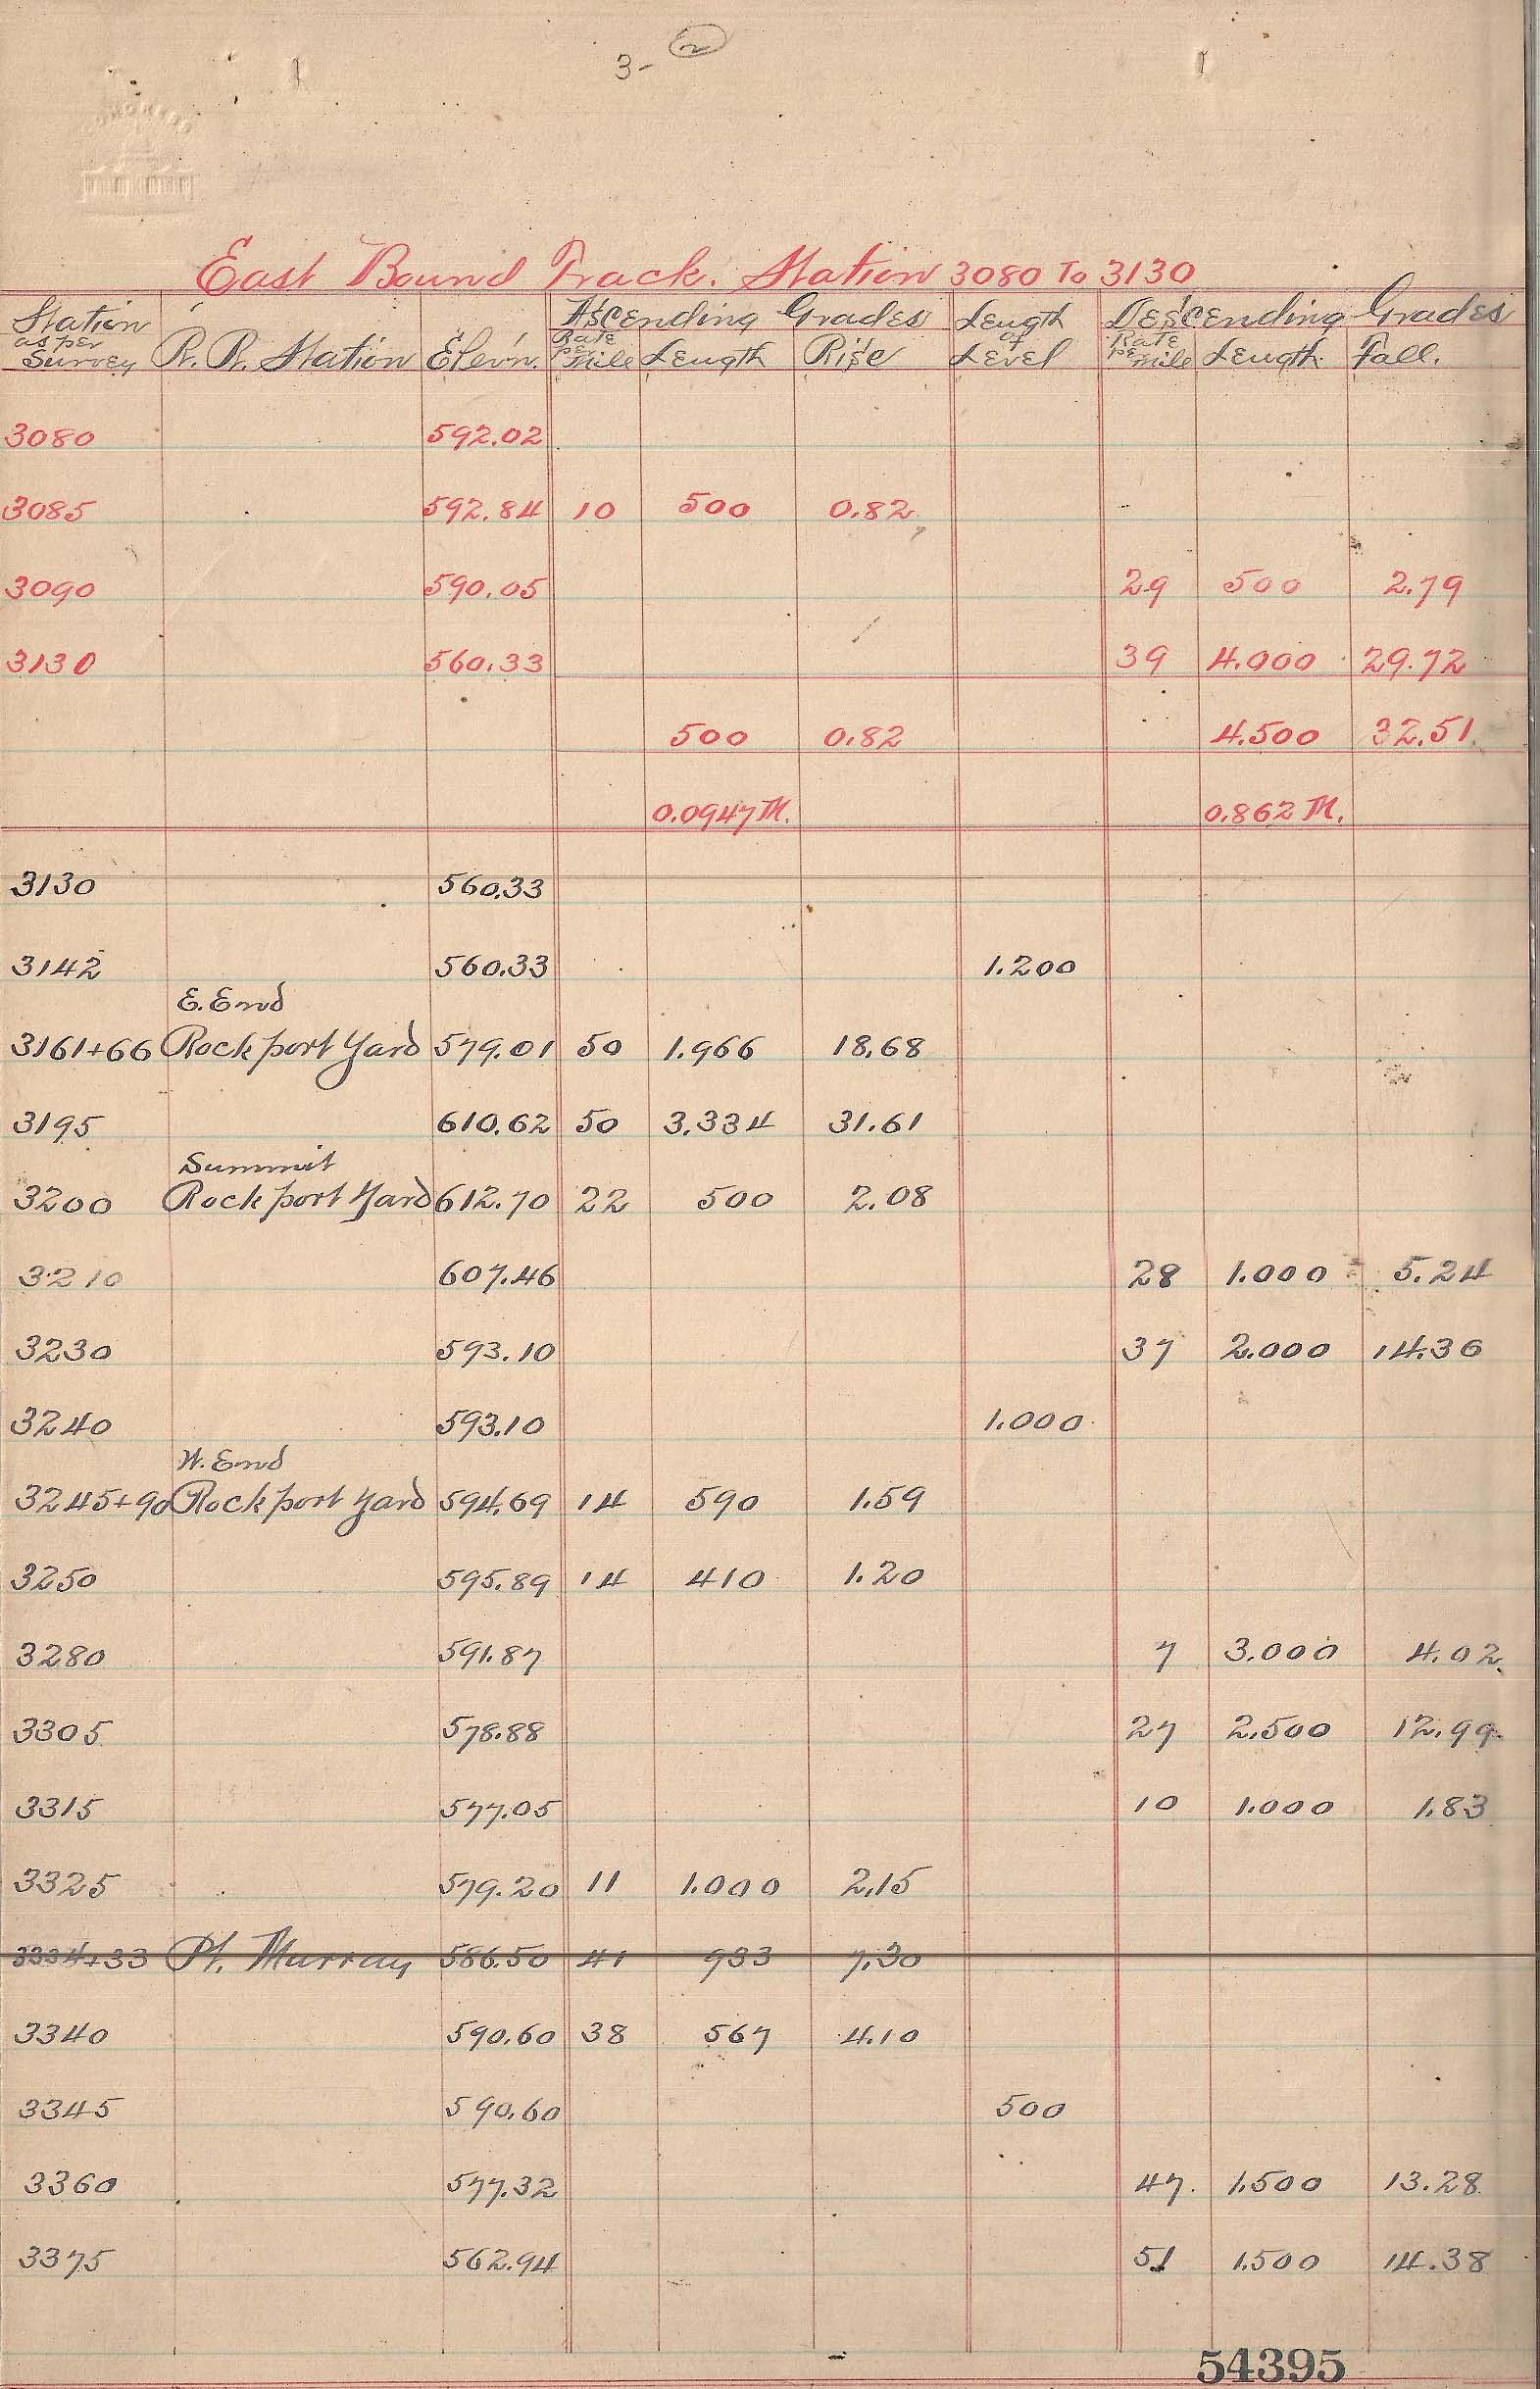 3- 2
East Bound Track. Station 3080 To 3130
Station as per Survey R. R. Station Elev'n. Ascending Grades Rate pr mile Length Rise Length of Level Descending Grades Rate pr mile Length Fall.
3080 592.02
3085 592.84 10 500 0.82
3090 590.05 29 500 2.79
3130 560.33 39 4.000 29.72
500 0.82 4.500 32.51
0.0947 M. 0.862 M.
3130 560.33
3142 560.33 1.200
E. End
3161+66 Rockport Yard 579.01 50 1.966 18.68
3195 610.62 50 3.334 31.61
Summit
3200 Rockport Yard 612.70 22 500 2.08
3210 607.46 28 1.000 5.24
3230 593.10 37 2.000 14.36
3240 593.10 1.000
W. End
3245+90 Rockport Yard 594.69 14 590 1.59
3250 595.89 14 410 1.20
3280 591.87 7 3.000 4.02
3305 578.88 27 2.500 12.99
3315 577.05 10 1.000 1.83
3325 579.20 11 1.000 2.15
3334+33 Pt. Murray 586.50 41 933 7.30
3340 590.60 38 567 4.10
3345 590.60 500
3360 577.32 47. 1.500 13.28
3375 562.94 51 1.500 14.38
54395